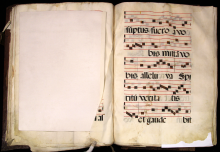 sūptus fuero, vo
bis mittā vo
bis allelu ia Spi
ritū verita tis
et gaude bit